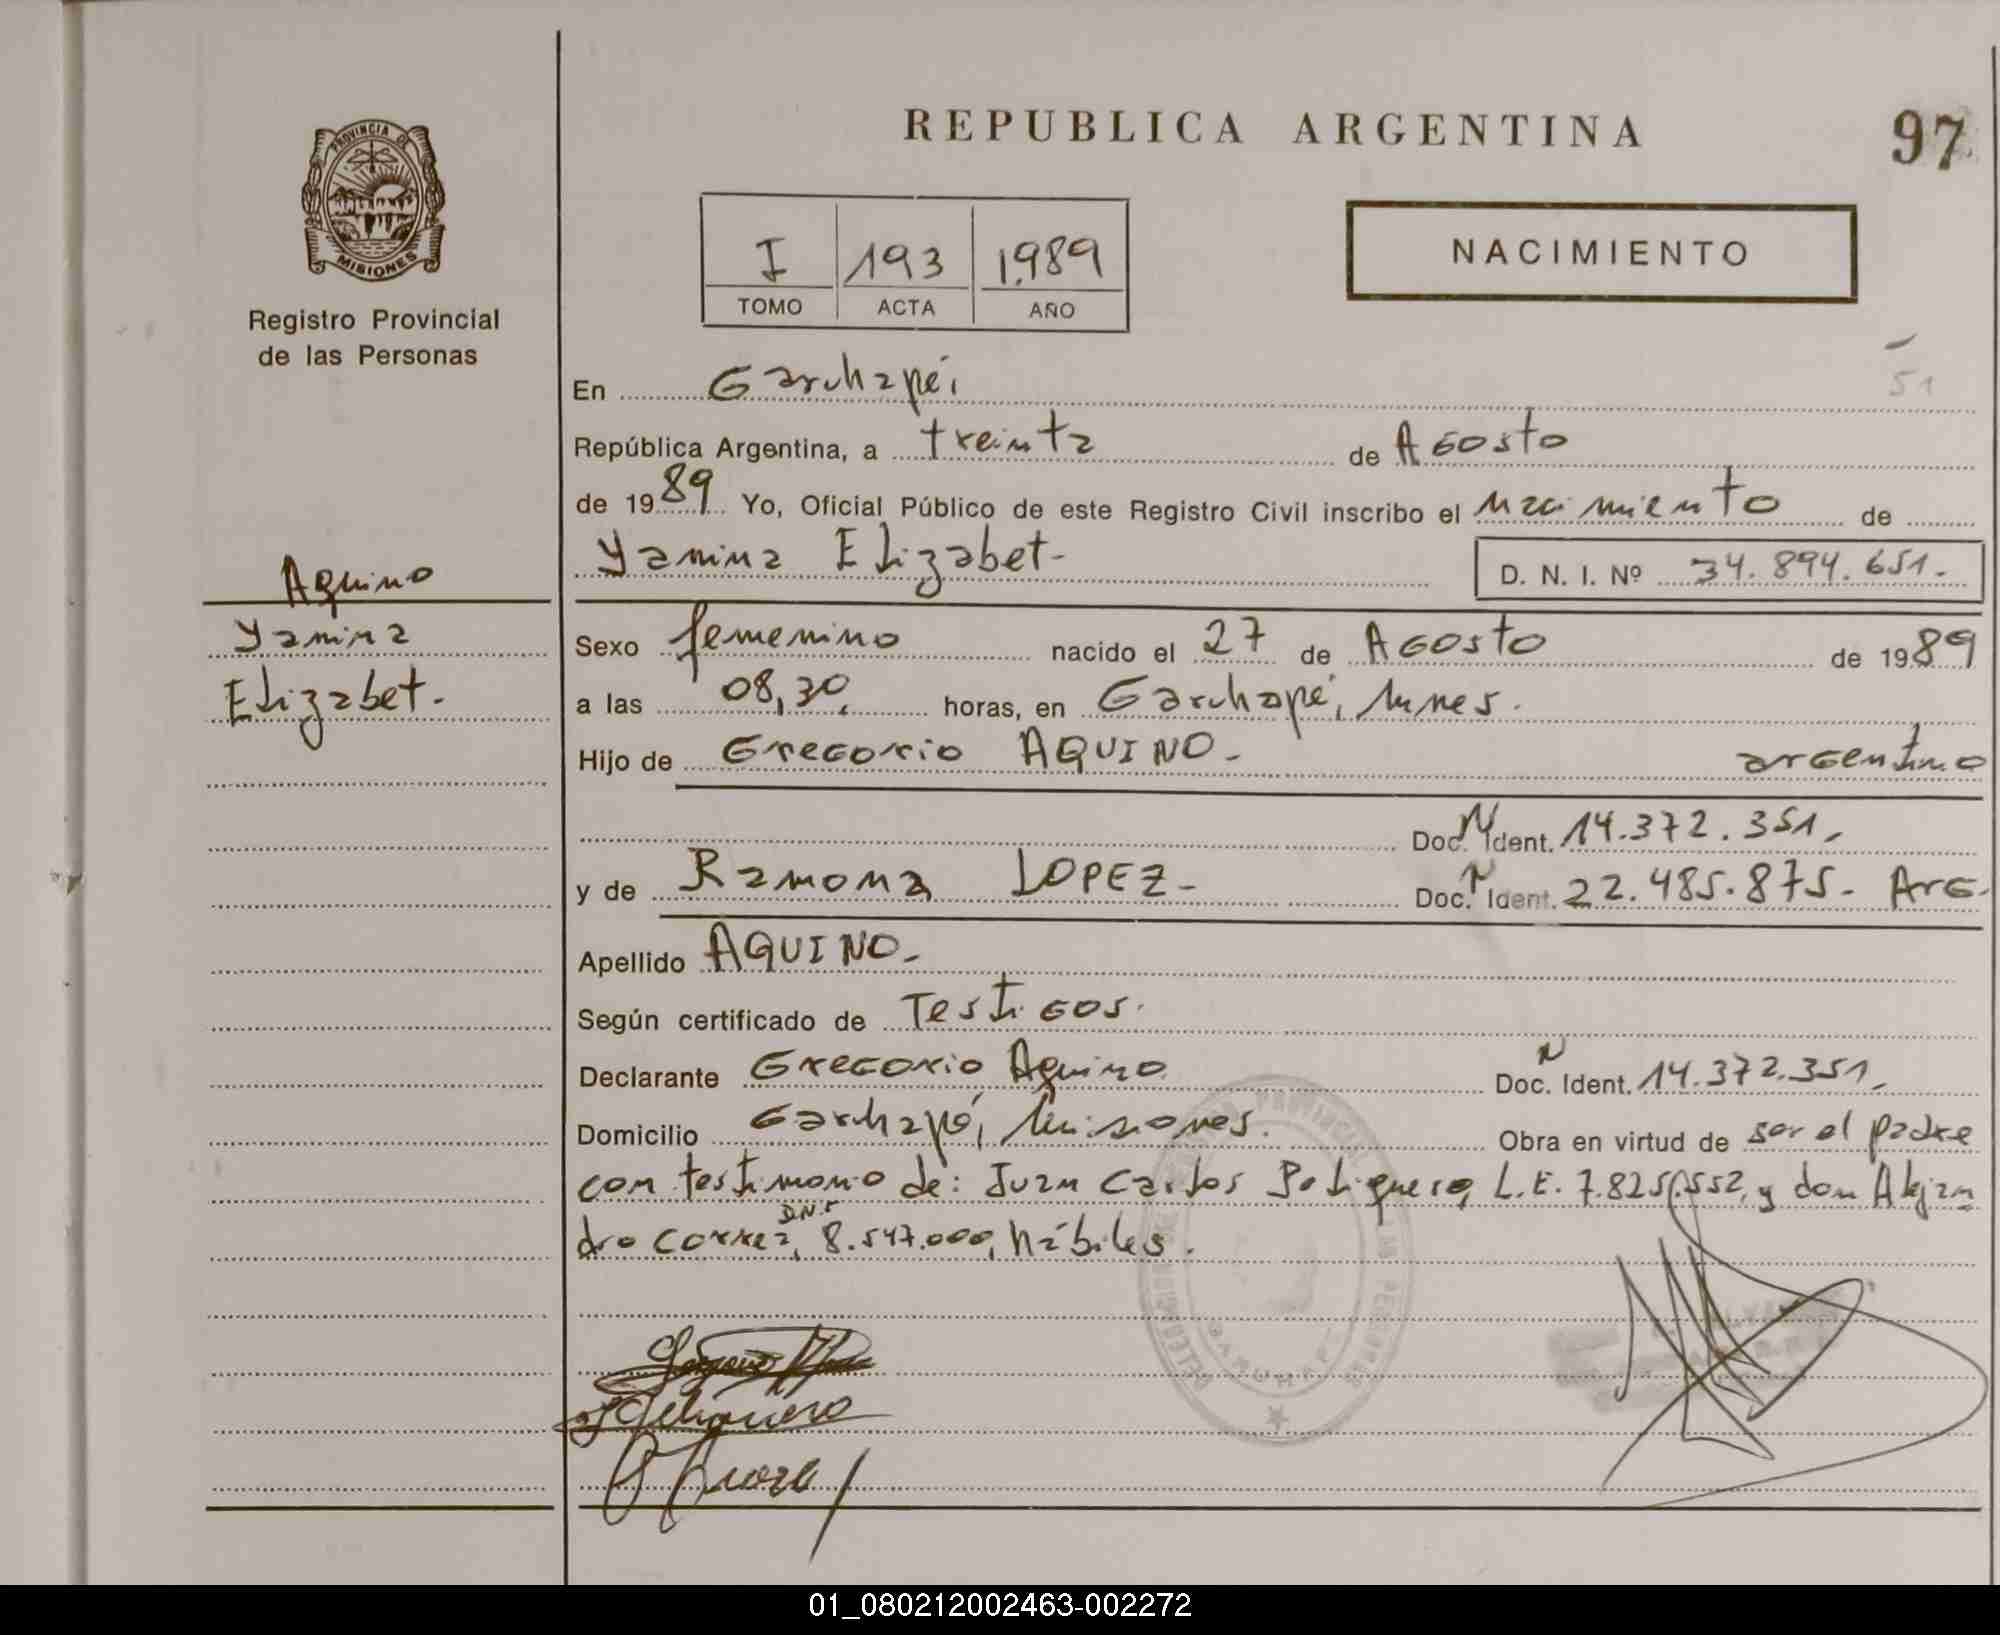 REPUBLICA ARGENTINA
97
PROVINCIA DE
MISIONES
Registro Provincial
de las Personas
I 193 1.989
TOMO ACTA AÑO
NACIMIENTO
51
En Garuhapé,
República Argentina, a treinta de Agosto
de 1989 Yo, Oficial Público de este Registro Civil inscribo el nacimiento de
Yanina Elizabet-
D. N. I. Nº 34.894.651.-
Aquino
Yanina
Elizabet.-
Sexo femenino nacido el 27 de Agosto de 1989
a las 08,30, horas, en Garuhapé, mnes.
Hijo de Gregorio AQUINO- argentino
Doc. N Ident. 14.372.351,
y de Ramona LOPEZ- Doc. N Ident. 22.485.875- Arg.
Apellido AQUINO-
Según certificado de Testigos.
Declarante Gregorio Aquino Doc. N Ident. 14.372.351,
Domicilio Garuhapé, Misiones. Obra en virtud de ser el padre
con testimonio de: Juan Carlos L.E. 7.825.552, y don Alejan
dro Correa, D.N.I 8.547.000, hábiles.
PROVINCIAL
GARUHAPE
01_080212002463-002272